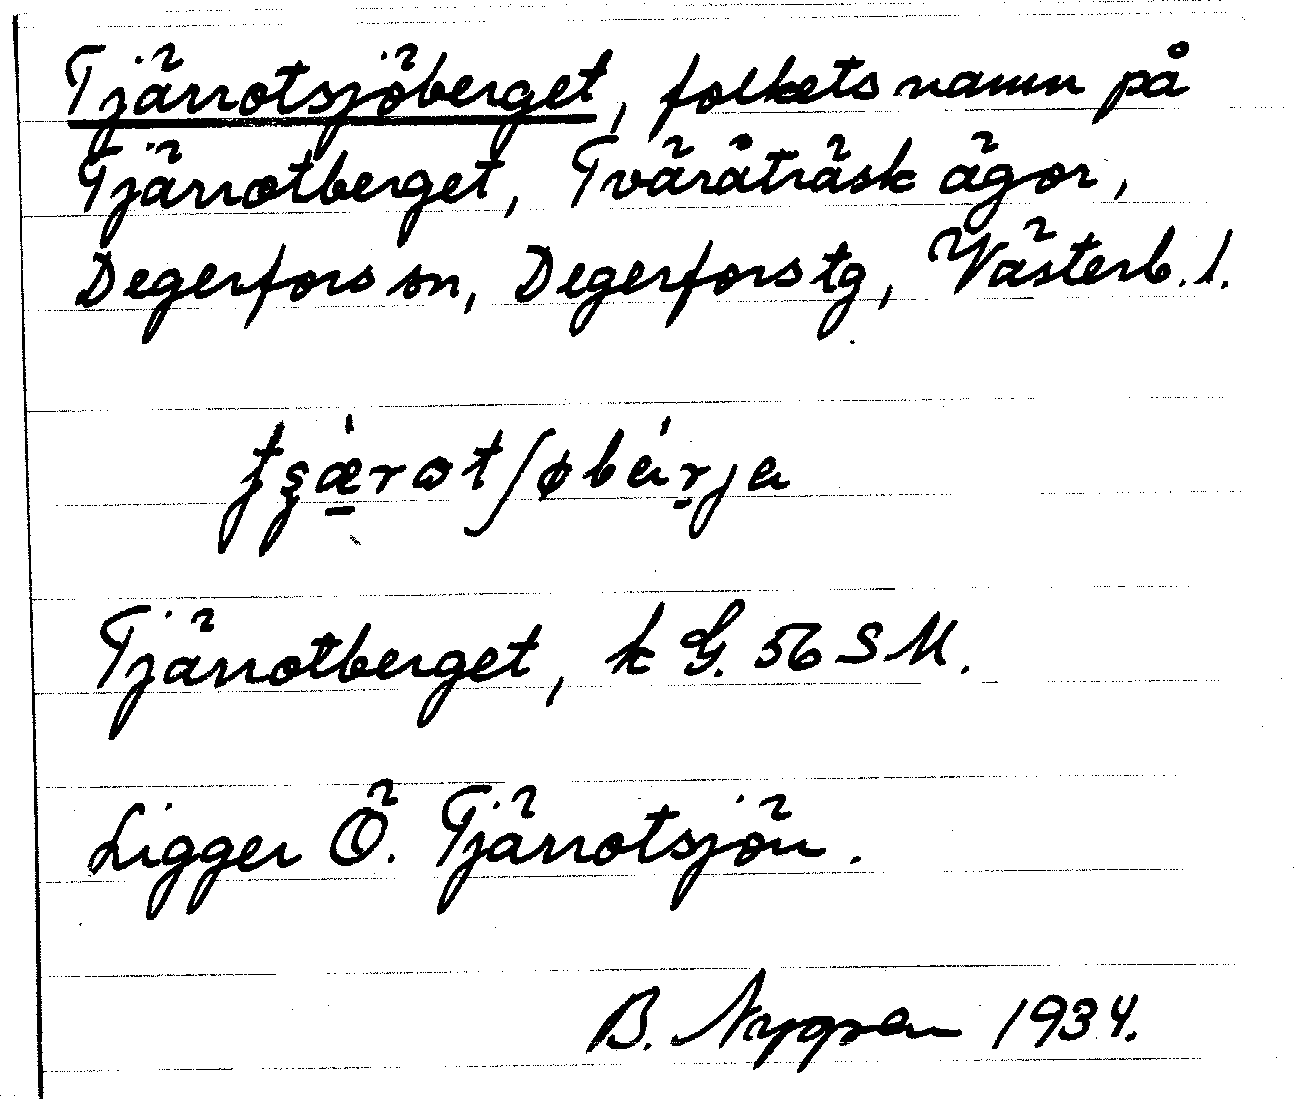 Tjärrotsjöberget, folkets namn på
Tjärrotberget, Tväråträsk ägor,
Degerfors sn, Degerfors tg, Västerb. l.
Tjärrotberget, k G. 56 S M.
Ligger Ö. Tjärrotsjön.
B. Nygren 1934.